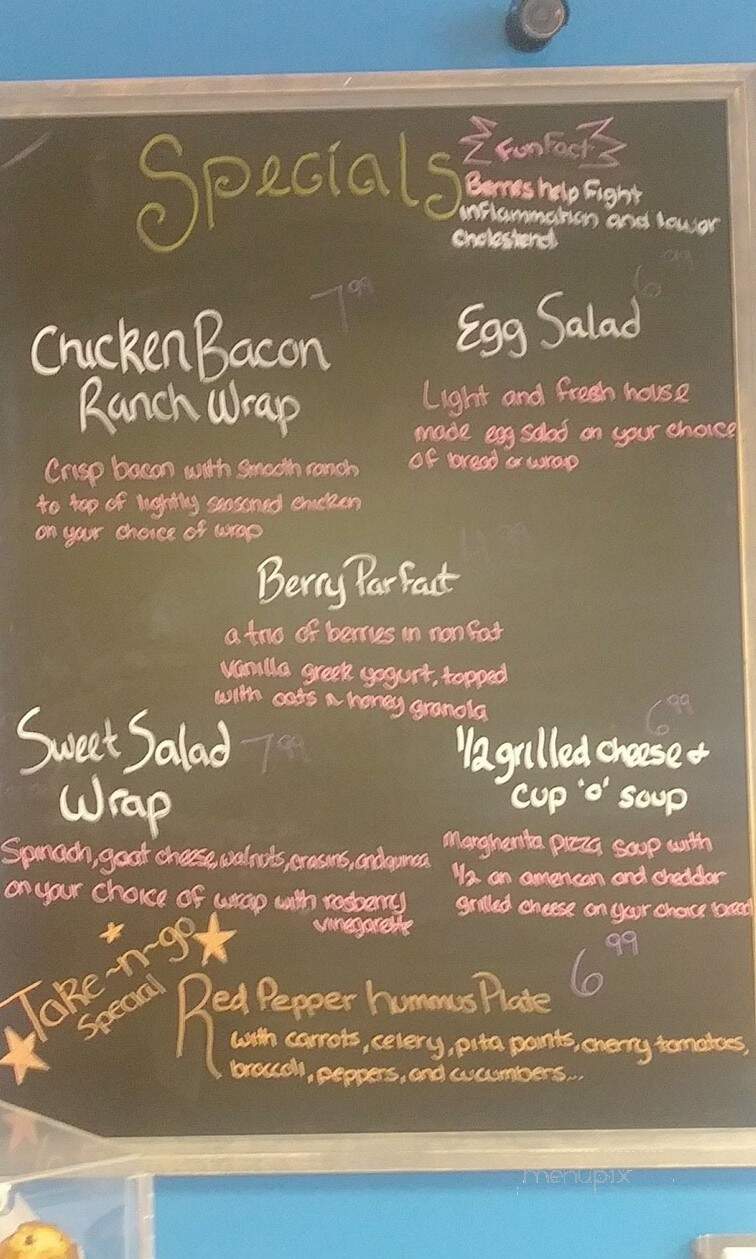 Specials
Fun Fact
Berries help Fight
inflammation and lower
cholesterol
7 99
Chicken Bacon
Ranch Wrap
Crisp bacon with smooth ranch
to top of lightly seasoned chicken
on your choice of wrap
6 99
Egg Salad
Light and fresh house
made egg salad on your choice
of bread or wrap
99
Berry Parfait
a trio of berries in non fat
vanilla greek yogurt, topped
with oats n honey granola
Sweet Salad 7 99
Wrap
Spinach, goat cheese, walnuts, crasins, and quinoa
on your choice of wrap with rasberry
vinegarette
6 99
1/2 grilled cheese +
cup 'o' soup
Margherita pizza soup with
1/2 an american and cheddar
grilled cheese on your choice bread
Take-n-go
Special
6 99
Red Pepper hummus Plate
with carrots, celery, pita points, cherry tomatoes,
broccoli, peppers, and cucumbers...
menupix